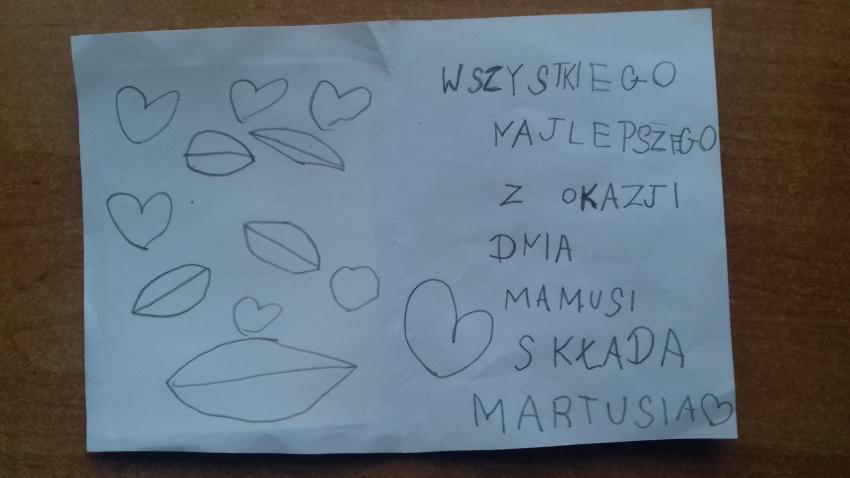 WSZYSTKIEGO
NAJLEPSZEGO
Z OKAZJI
DNIA
MAMUSI
SKŁADA
MARTUSIA